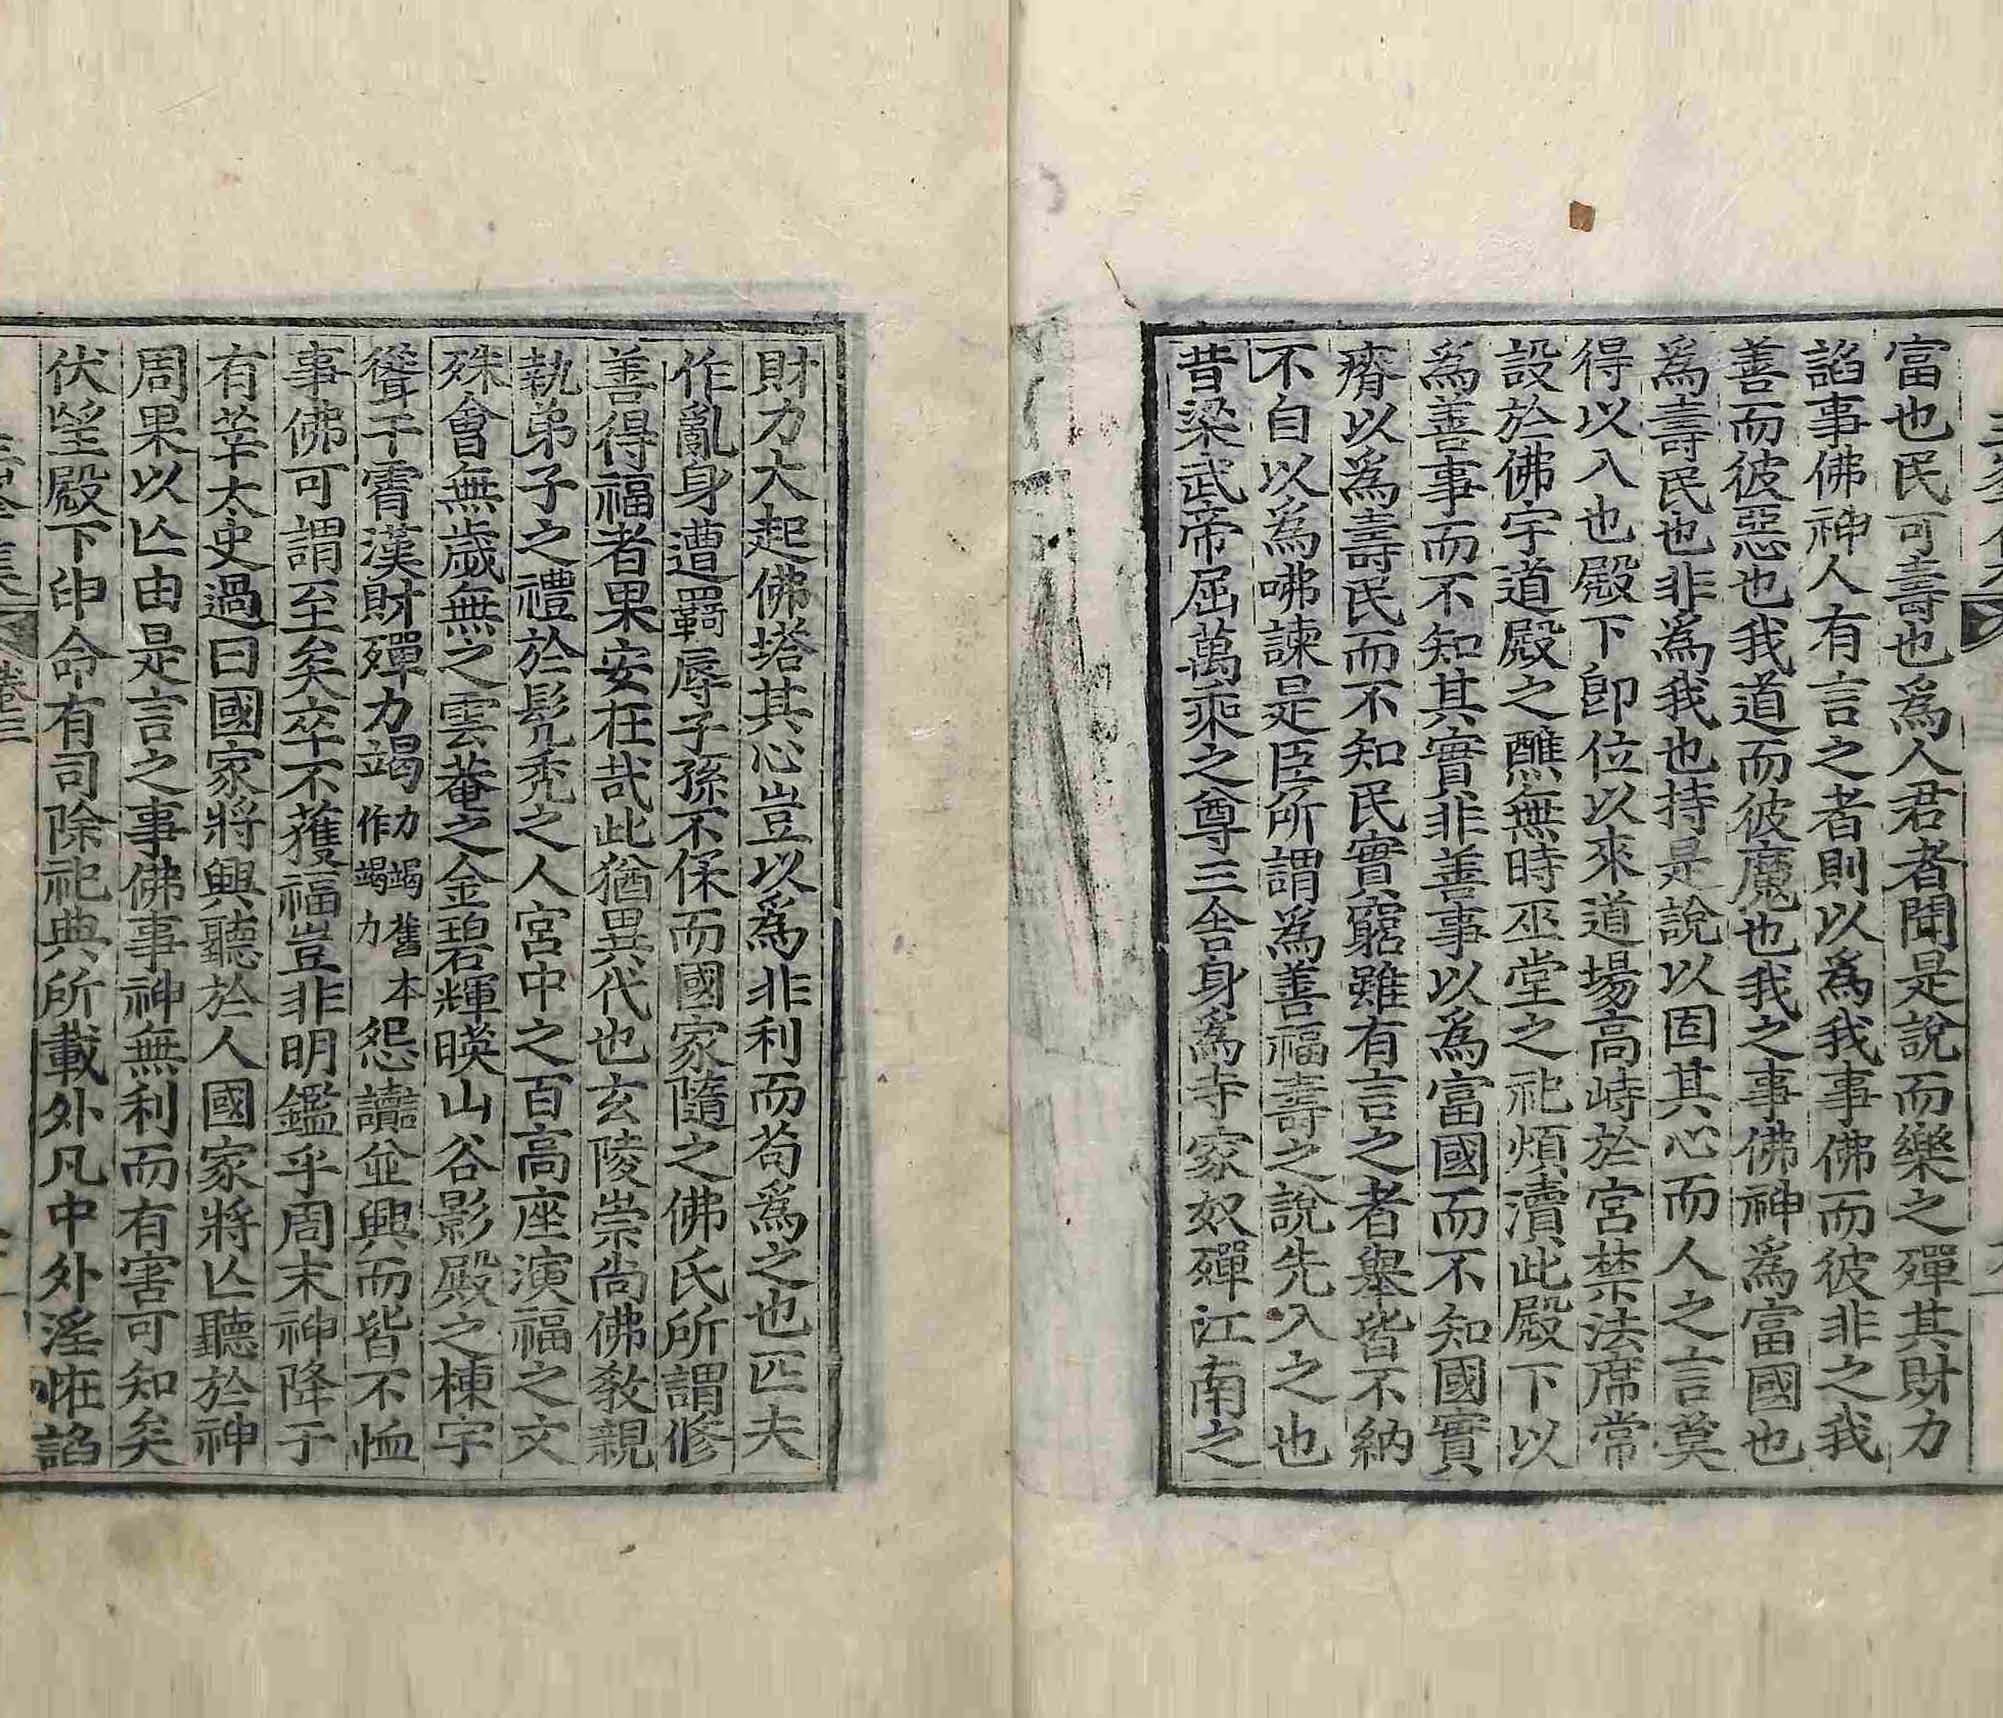 富也民可壽也爲人君者聞是說而樂之殫其財力
諂事佛神人有言之者則以爲我事佛而彼非之我
善而彼惡也我道而彼魔也我之事佛神爲富國也
爲壽民也非爲我也持是說以固其心而人之言莫
得以入也殿下卽位以來道場高峙於宮禁法席常
設於佛宇道殿之醮無時巫堂之祀煩瀆此殿下以
爲善事而不知其實非善事以爲富國而不知國實
瘠以爲壽民而不知民實窮雖有言之者擧皆不納
不自以爲咈諫是臣所謂爲善福壽之說先入之也
昔梁武帝屈萬乘之尊三舍身爲寺家奴殫江南之
財力大起佛塔其心豈以爲非利而苟爲之也匹夫
作亂身遭羈辱子孫不保而國家隨之佛氏所謂修
善得福者果安在哉此猶異代也玄陵崇尙佛敎親
執弟子之禮於髡禿之人宮中之百高座演福之文
殊會無歲無之雲菴之金碧輝暎山谷影殿之棟宇
聳于霄漢財殫力竭力竭舊本作竭力怨讟並興而皆不恤
事佛可謂至矣卒不獲福豈非明鑑乎周末神降于
有莘太史過曰國家將興聽於人國家將亾聽於神
周果以亾由是言之事佛事神無利而有害可知矣
伏望殿下申命有司除祀典所載外凡中外淫怪諂
卷三